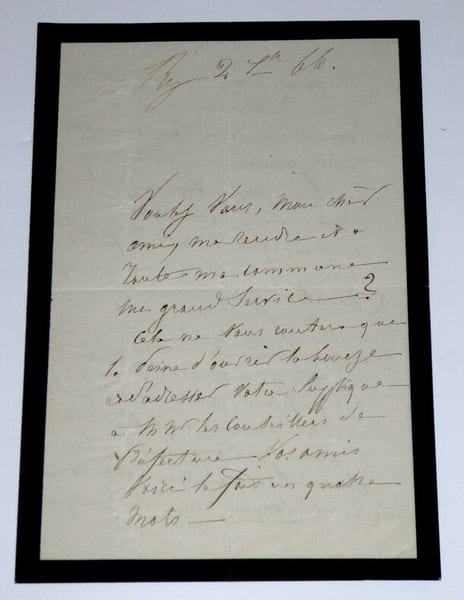 2 66.
Voulez Vous, mon cher
ami, me rendre et a
Toute ma commune
un grand Service — ?
Cela ne Vous coutera que
la Peine d'ouvrir la bouche
et d'adresser Votre Supplique
a MM les Conseillers de
Préfecture Vos amis
Voici le fait en quatre
Mots —